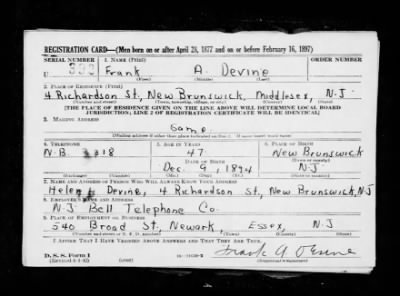 REGISTRATION CARD—(Men born on or after April 28, 1877 and on or before February 16, 1897)
SERIAL NUMBER 1. NAME (Print)
U 332 Frank A Devine
(First) (Middle) (Last)
2. PLACE OF RESIDENCE (Print)
4 Richardson St, New Brunswick, Middlesex, N-J
(Number and street) (Town, township, village, or city) (County) (State)
[THE PLACE OF RESIDENCE GIVEN ON THE LINE ABOVE WILL DETERMINE LOCAL BOARD
JURISDICTION; LINE 2 OF REGISTRATION CERTIFICATE WILL BE IDENTICAL]
3. MAILING ADDRESS
Same
[Mailing address if other than place indicated on line 2. If same insert word same]
4. TELEPHONE 5. AGE IN YEARS 6. PLACE OF BIRTH
N-B 3318 47 New Brunswick
DATE OF BIRTH
Dec 9, 1894 N-J
7. NAME AND ADDRESS OF PERSON WHO WILL ALWAYS KNOW YOUR ADDRESS
Helen L Devine, 4 Richardson St, New Brunswick, N-J
8. EMPLOYER'S NAME AND ADDRESS
N-J Bell Telephone Co.
9. PLACE OF EMPLOYMENT OR BUSINESS
540 Broad St., Newark, Essex, N-J
(Number and street or R. F. D. number) (Town) (County) (State)
I AFFIRM THAT I HAVE VERIFIED ABOVE ANSWERS AND THAT THEY ARE TRUE.
D. S. S. Form 1 Frank A Devine